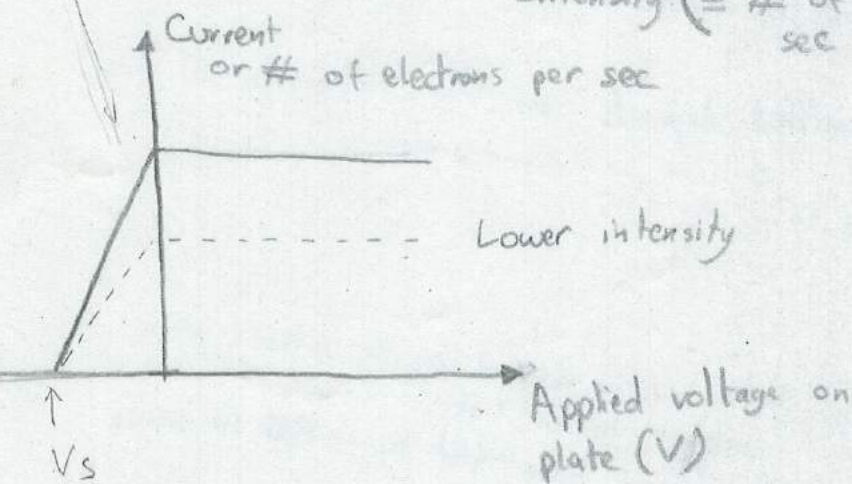 Intensity (= # of
sec
Current
or # of electrons per sec
Lower intensity
Applied voltage on
plate (V)
Vs